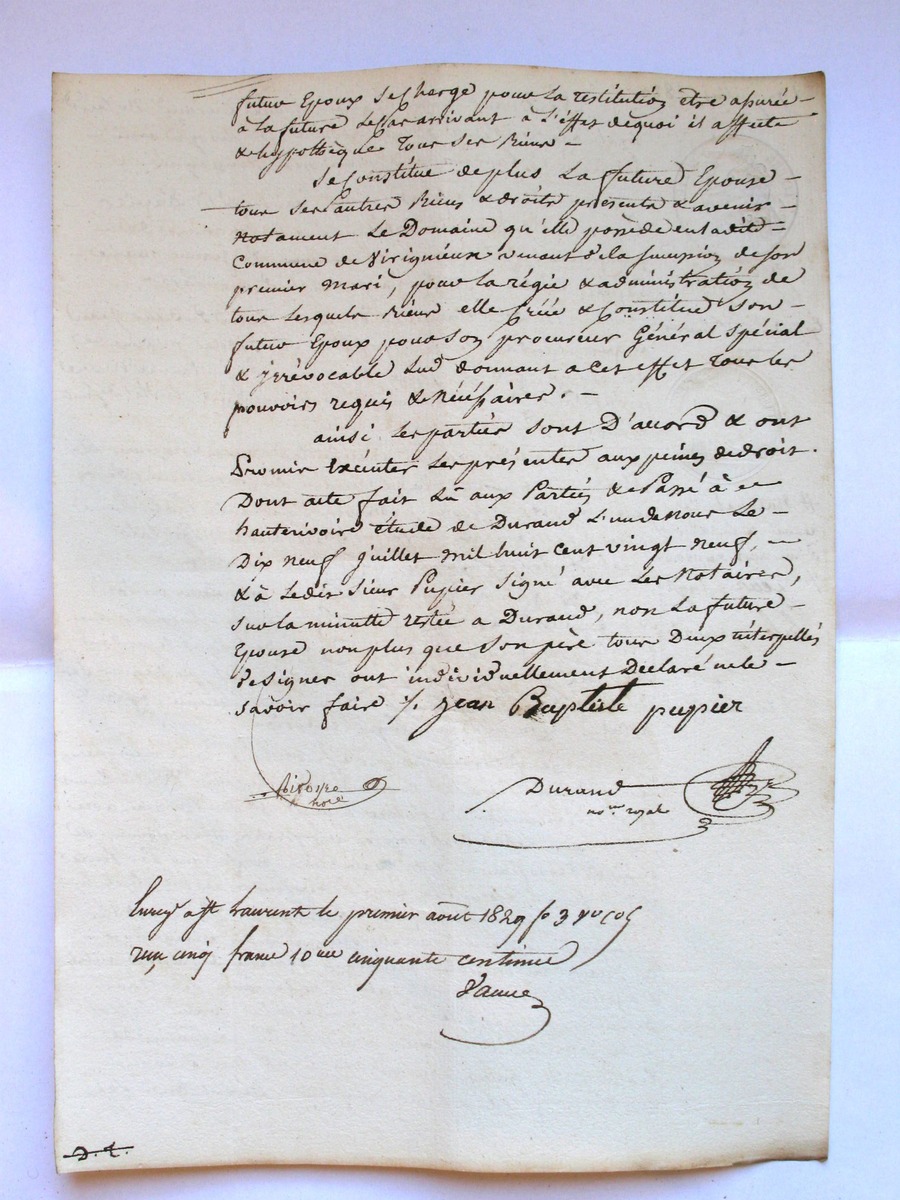 futur Epoux Se Charge pour la restitution etre assurée
à la future le Cas arrivant à l'effet dequoi il affecte
& hypothèque tous ses Biens –
Se Constitue de plus la future Epouse –
tous ses autres Biens & droits présents & avenir –
notament le Domaine qu'elle possède en ladite
Commune de Virignieux venant de la succession de son
premier mari, pour la régie & administration de
tous lesquels Biens elle Créé & Constitue Son –
futur Epoux pour son procureur Général Spécial
& jrrévocable Lui donnant a cet effet tous les
pouvoirs requis & Nécéssaires. –
ainsi les parties sont D'accord & ont
Promis Exécuter les présentes aux peines de droit.
Dont acte fait Lû aux Parties & Passé à
hauterivoire étude de Durand L'un de Nous Le –
Dix neuf Juillet mil huit cent vingt neuf, –
& à Ledit Sieur Pupier Signé avec Les Notaires,
sur la minutte restée a Durand, non La future –
Epouse non plus que Son père tous Deux interpellés
de Signer ont individuellement Déclaré ne le –
savoir faire ⁒ jean Baptiste pupier
Durand
no.re royal
Enreg.é a St Laurent le premier août 1829 fo 3 Vo
reçu cinq francs 10.me cinquante centimes
D. t.